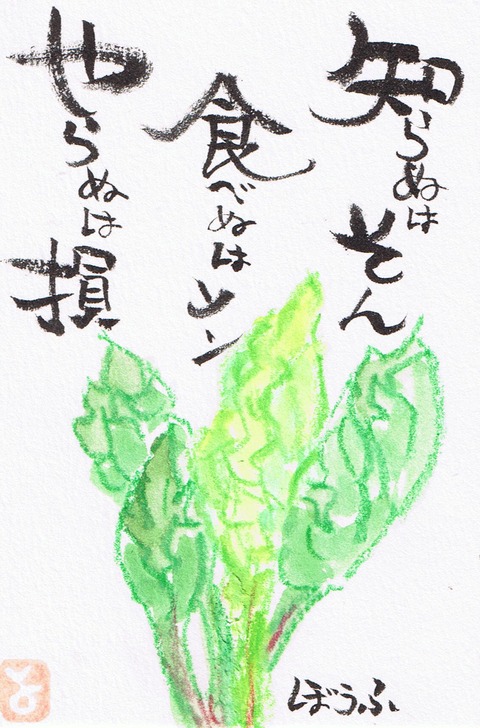 知らぬはそん
食べぬはソン
やらぬは損
ぼうふ
と